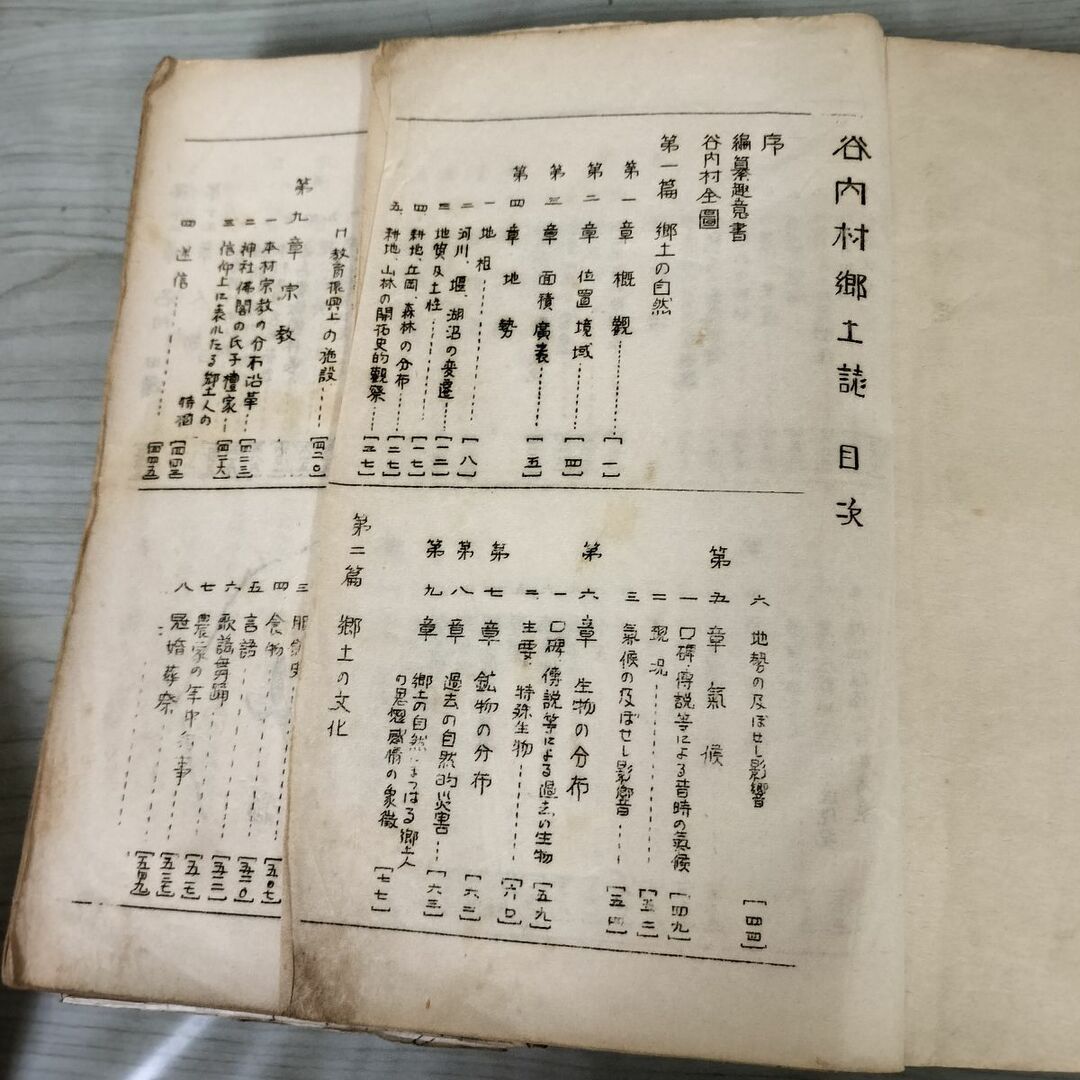 谷内村郷土誌 目次
序
編纂趣意書
谷内村全圖
第一篇 郷土の自然
第一章 概觀 [一]
第二章 位置境域 [四]
第三章 面積廣袤 [五]
第四章 地勢
一 地相 [八]
二 河川、堰、湖沼の変遷 [一二]
三 地質及土性 [一七]
四 耕地、丘岡、森林の分布 [二七]
五 耕地、山林の開拓史的觀察 [三七]
六 地勢の及ぼせし影響 [四四]
第五章 氣候
一 口碑、傳説等による昔時の氣候 [四九]
二 現況 [五二]
三 氣候の及ぼせし影響 [五四]
第六章 生物の分布
一 口碑、傳説等による過去の生物 [五九]
二 主要、特殊生物 [六〇]
第七章 鉱物の分布 [六二]
第八章 過去の自然的災害 [六三]
第九章 郷土の自然にまつはる郷土人の思想感情の象徴 [七七]
第二篇 郷土の文化
教育振興上の施設 [四二〇]
第九章 宗教
一 本村宗教の分布沿革 [四二三]
二 神社佛閣の氏子檀家 [四二六]
三 信仰上に表れたる郷土人の特殊 [四四三]
四 迷信 [四四五]
三 服飾史 [五〇七]
四 食物 [五二〇]
五 言語 [五二二]
六 歌謡舞踊 [五二七]
七 農家の年中行事 [五三七]
八 冠婚葬祭 [五四九]